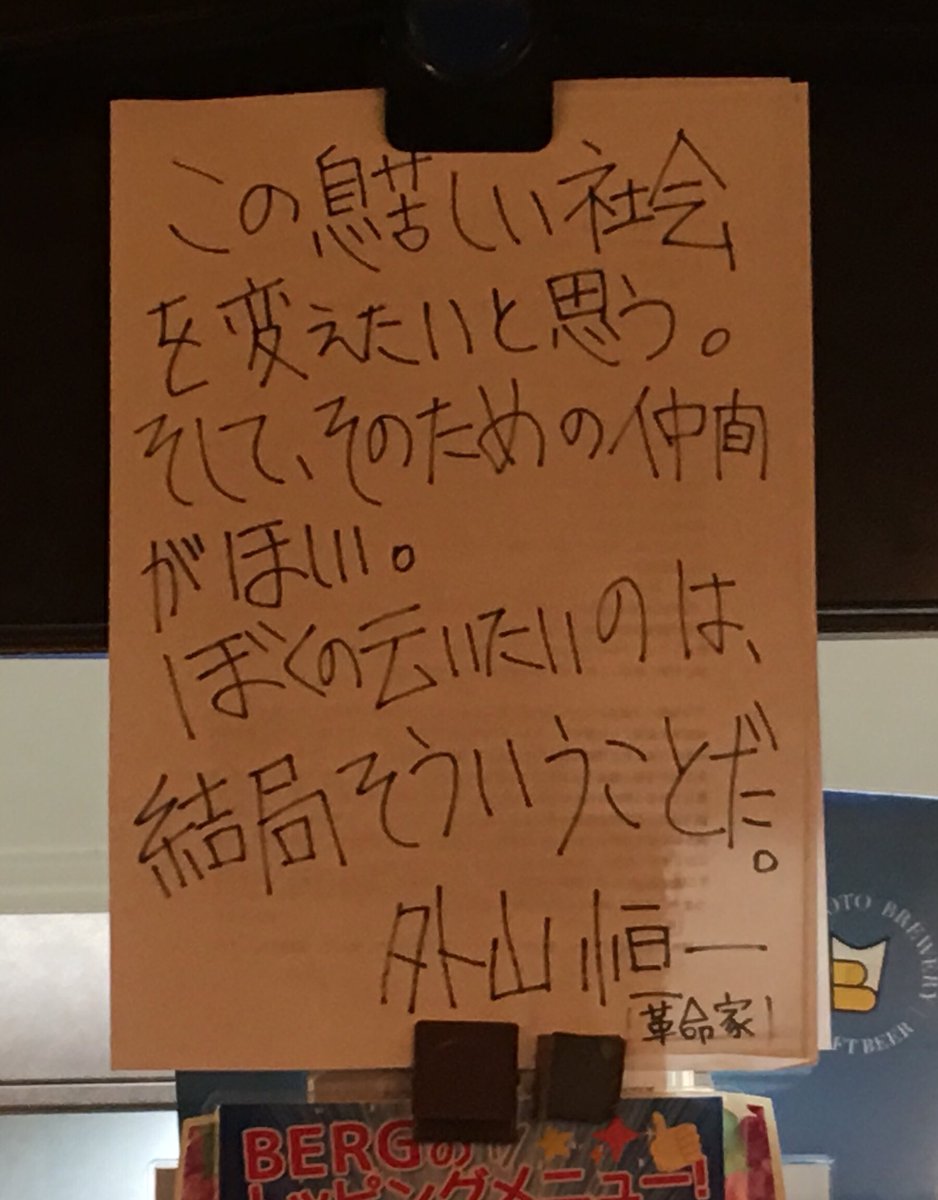 この息苦しい社会
を変えたいと思う。
そして、そのための仲間
がほしい。
ぼくの云いたいのは、
結局そういうことだ。
外山恒一
革命家
OTO BREWERY
FT BEER
BERGの
トッピングメニュー!